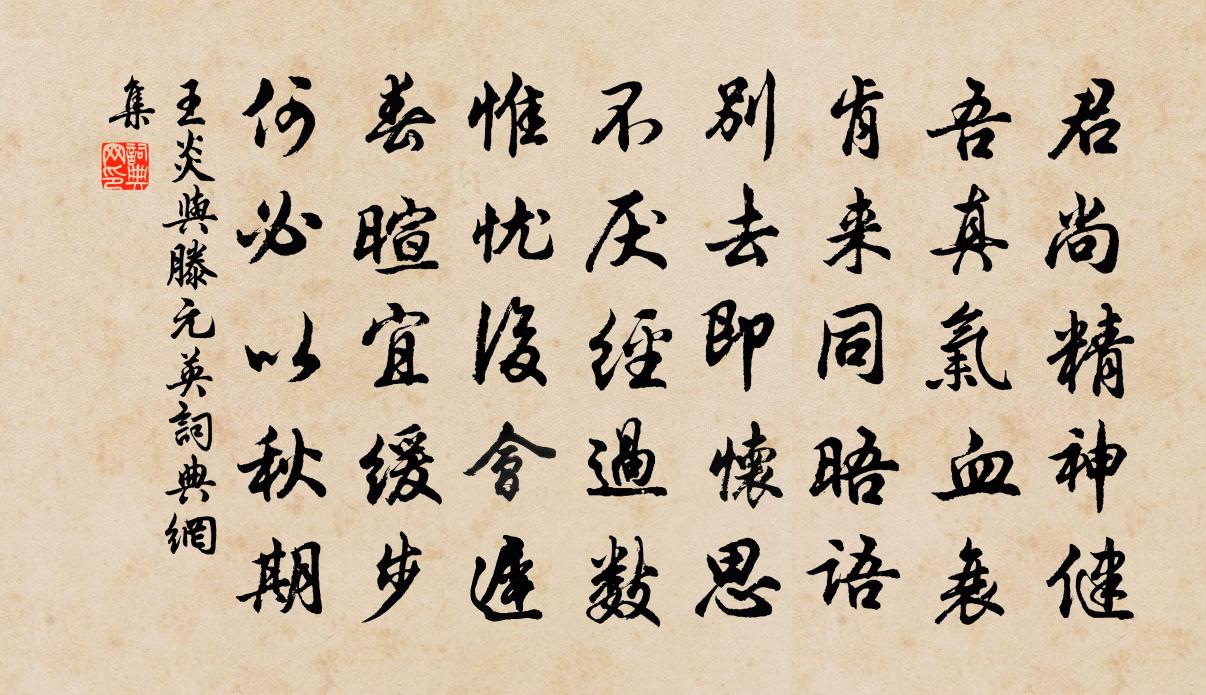 君尚精神健
吾真氣血衰
肯来同晤语
别去即懷思
不厌經過數
惟忧後會遲
春暄宜缓步
何必以秋期
王炎與滕元英詞典網
集
詞典网印